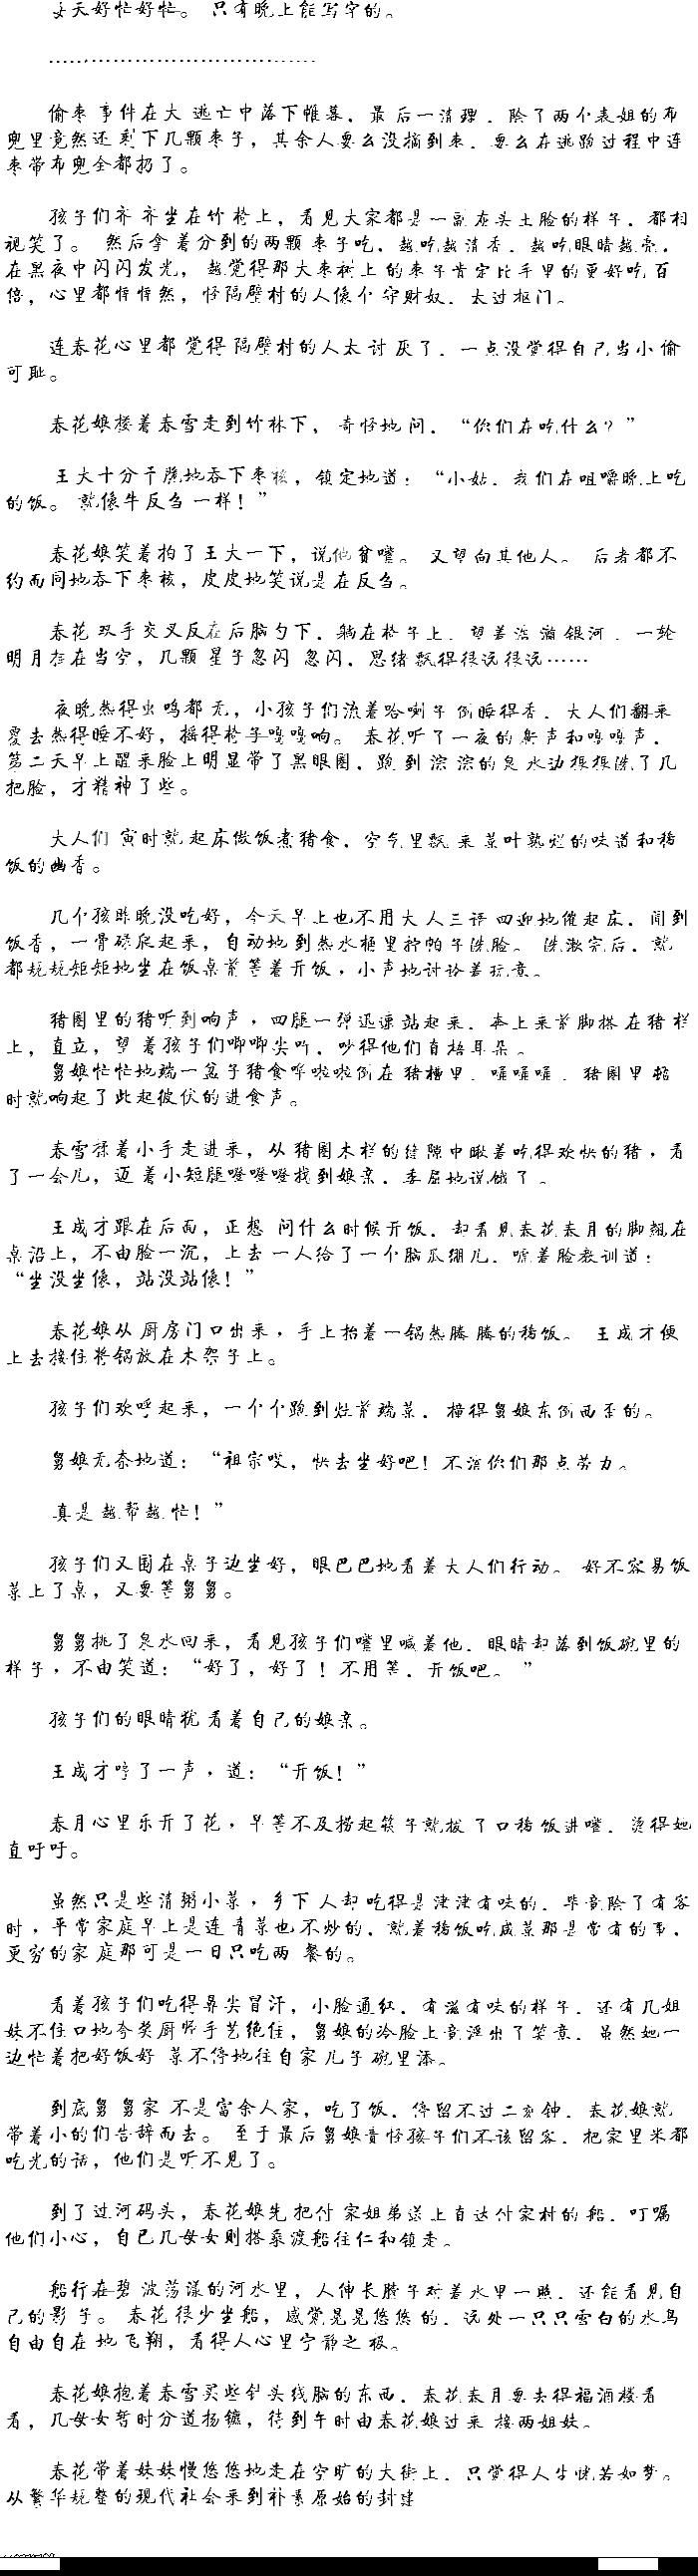 每天好忙好忙。 只有晚上能写字的。
……………………………
偷枣 事件在大 逃亡中落下帷幕，最后一清理，除了两个表姐的布
兜里竟然还剩下几颗枣子，其余人要么没摘到枣，要么在逃跑过程中连
枣带布兜全都扔了。
孩子们齐 齐坐在竹椅上，看见大家都是一副灰头土脸的样子，都相
视笑了。 然后拿着分到的两颗枣子吃，越吃越清香，越吃眼睛越亮，
在黑夜中闪闪发光， 越觉得那大枣树上的枣子肯定比手里的更好吃百
倍，心里都恨恨然，怪隔壁村的人像个守财奴，太过抠门。
连春花心里都觉得隔壁村的人太讨厌了，一点没觉得自己当小偷
可耻。
春花娘搂着春雪走到竹林下， 奇怪地问，“你们在吃什么？”
王大十分干脆地吞下枣核，镇定地道：“小姑，我们在咀嚼晚上吃
的饭。 就像牛反刍一样！”
春花娘笑着拍了王大一下，说他贫嘴。 又望向其他人。 后者都不
约而同地吞下枣核，皮皮地笑说是在反刍。
春花双手交叉反在后脑勺下，躺在椅子上，望着浩瀚银河，一轮
明月挂在当空，几颗 星子忽闪忽闪，思绪飘得很远很远……
夜晚热得虫鸣都无，小孩子们流着哈喇子倒睡得香，大人们翻来
覆去热得睡不好，摇得椅子嘎嘎响。 春花听了一夜的鼾声和嘎嘎声，
第二天早上醒来脸上明显带了黑眼圈，跑到淙淙的泉水边狠狠洗了几
把脸，才精神了些。
大人们 寅时就起床做饭煮猪食，空气里飘来菜叶熟烂的味道和稀
饭的幽香。
几个孩昨晚没吃好，今天早上也不用大人三请四迎地催起床，闻到
饭香，一骨碌爬起来，自动地到热水桶里拧帕子洗脸。 洗漱完后，就
都规规矩矩地坐在饭桌前等着开饭，小声地讨论着玩意。
猪圈里的猪听到响声，四腿一弹迅速站起来，奔上来前脚搭在猪栏
上，直立，望着孩子们唧唧尖叫，吵得他们直捂耳朵。
舅娘忙忙地端一盆子猪食哗啦啦倒在猪槽里，嘡嘡嘡，猪圈里顿
时就响起了此起彼伏的进食声。
春雪揉着小手走进来，从猪圈木栏的缝隙中瞅着吃得欢快的猪，看
了一会儿，迈着小短腿噔噔噔找到娘亲，委屈地说饿了。
王成才跟在后面，正想 问什么时候开饭，却看见春花春月的脚翘在
桌沿上，不由脸一沉，上去一人给了一个脑瓜绷儿，唬着脸教训道：
“坐没坐像，站没站像！”
春花娘从厨房门口出来，手上抬着一锅热腾腾的稀饭。 王成才便
上去接住将锅放在木架子上。
孩子们欢呼起来，一个个跑到灶前端菜，撞得舅娘东倒西歪的。
舅娘无奈地道：“祖宗哎，快去坐好吧！不消你们那点劳力。
真是越帮越忙！”
孩子们又围在桌子边坐好，眼巴巴地看着大人们行动。 好不容易饭
菜上了桌，又要等舅舅。
舅舅挑了泉水回来，看见孩子们嘴里喊着他，眼睛却落到饭碗里的
样子，不由笑道：“好了，好了！不用等，开饭吧。”
孩子们的眼睛犹看着自己的娘亲。
王成才哼了一声，道：“开饭！”
春月心里乐开了花，早等不及捞起筷子就拨了口稀饭进嘴，烫得她
直吁吁。
虽然只是些清粥小菜，乡下人却吃得是津津有味的，毕竟除了有客
时，平常家庭早上是连青菜也不炒的，就着稀饭吃咸菜那是常有的事，
更穷的家庭那可是一日只吃两 餐的。
看着孩子们吃得鼻尖冒汗，小脸通红，有滋有味的样子，还有几姐
妹不住口地夸奖厨师手艺绝佳，舅娘的冷脸上竟浮出了笑意，虽然她一
边忙着把好饭好 菜不停地往自家儿子碗里添。
到底舅舅家 不是富余人家，吃了饭，停留不过二刻钟，春花娘就
带着小的们告辞而去。 至于最后舅娘责怪孩子们不该留客，把家里米都
吃光的话，他们是听不见了。
到了过河码头，春花娘先把付家姐弟送上直达付家村的船，叮嘱
他们小心，自己几母女则搭乘渡船往仁和镇走。
船行在碧波荡漾的河水里，人伸长脖子对着水里一照，还能看见自
己的影子。 春花很少坐船，感觉晃晃悠悠的，远处一只只雪白的水鸟
自由自在地飞翔，看得人心里宁静之极。
春花娘抱着春雪买些针头线脑的东西，春花春月要去得福酒楼看
看，几母女暂时分道扬镳，待到午时由春花娘过来接两姐妹。
春花带着妹妹慢悠悠地走在空旷的大街上，只觉得人生恍若如梦。
从繁华规整的现代社会来到朴素原始的封建